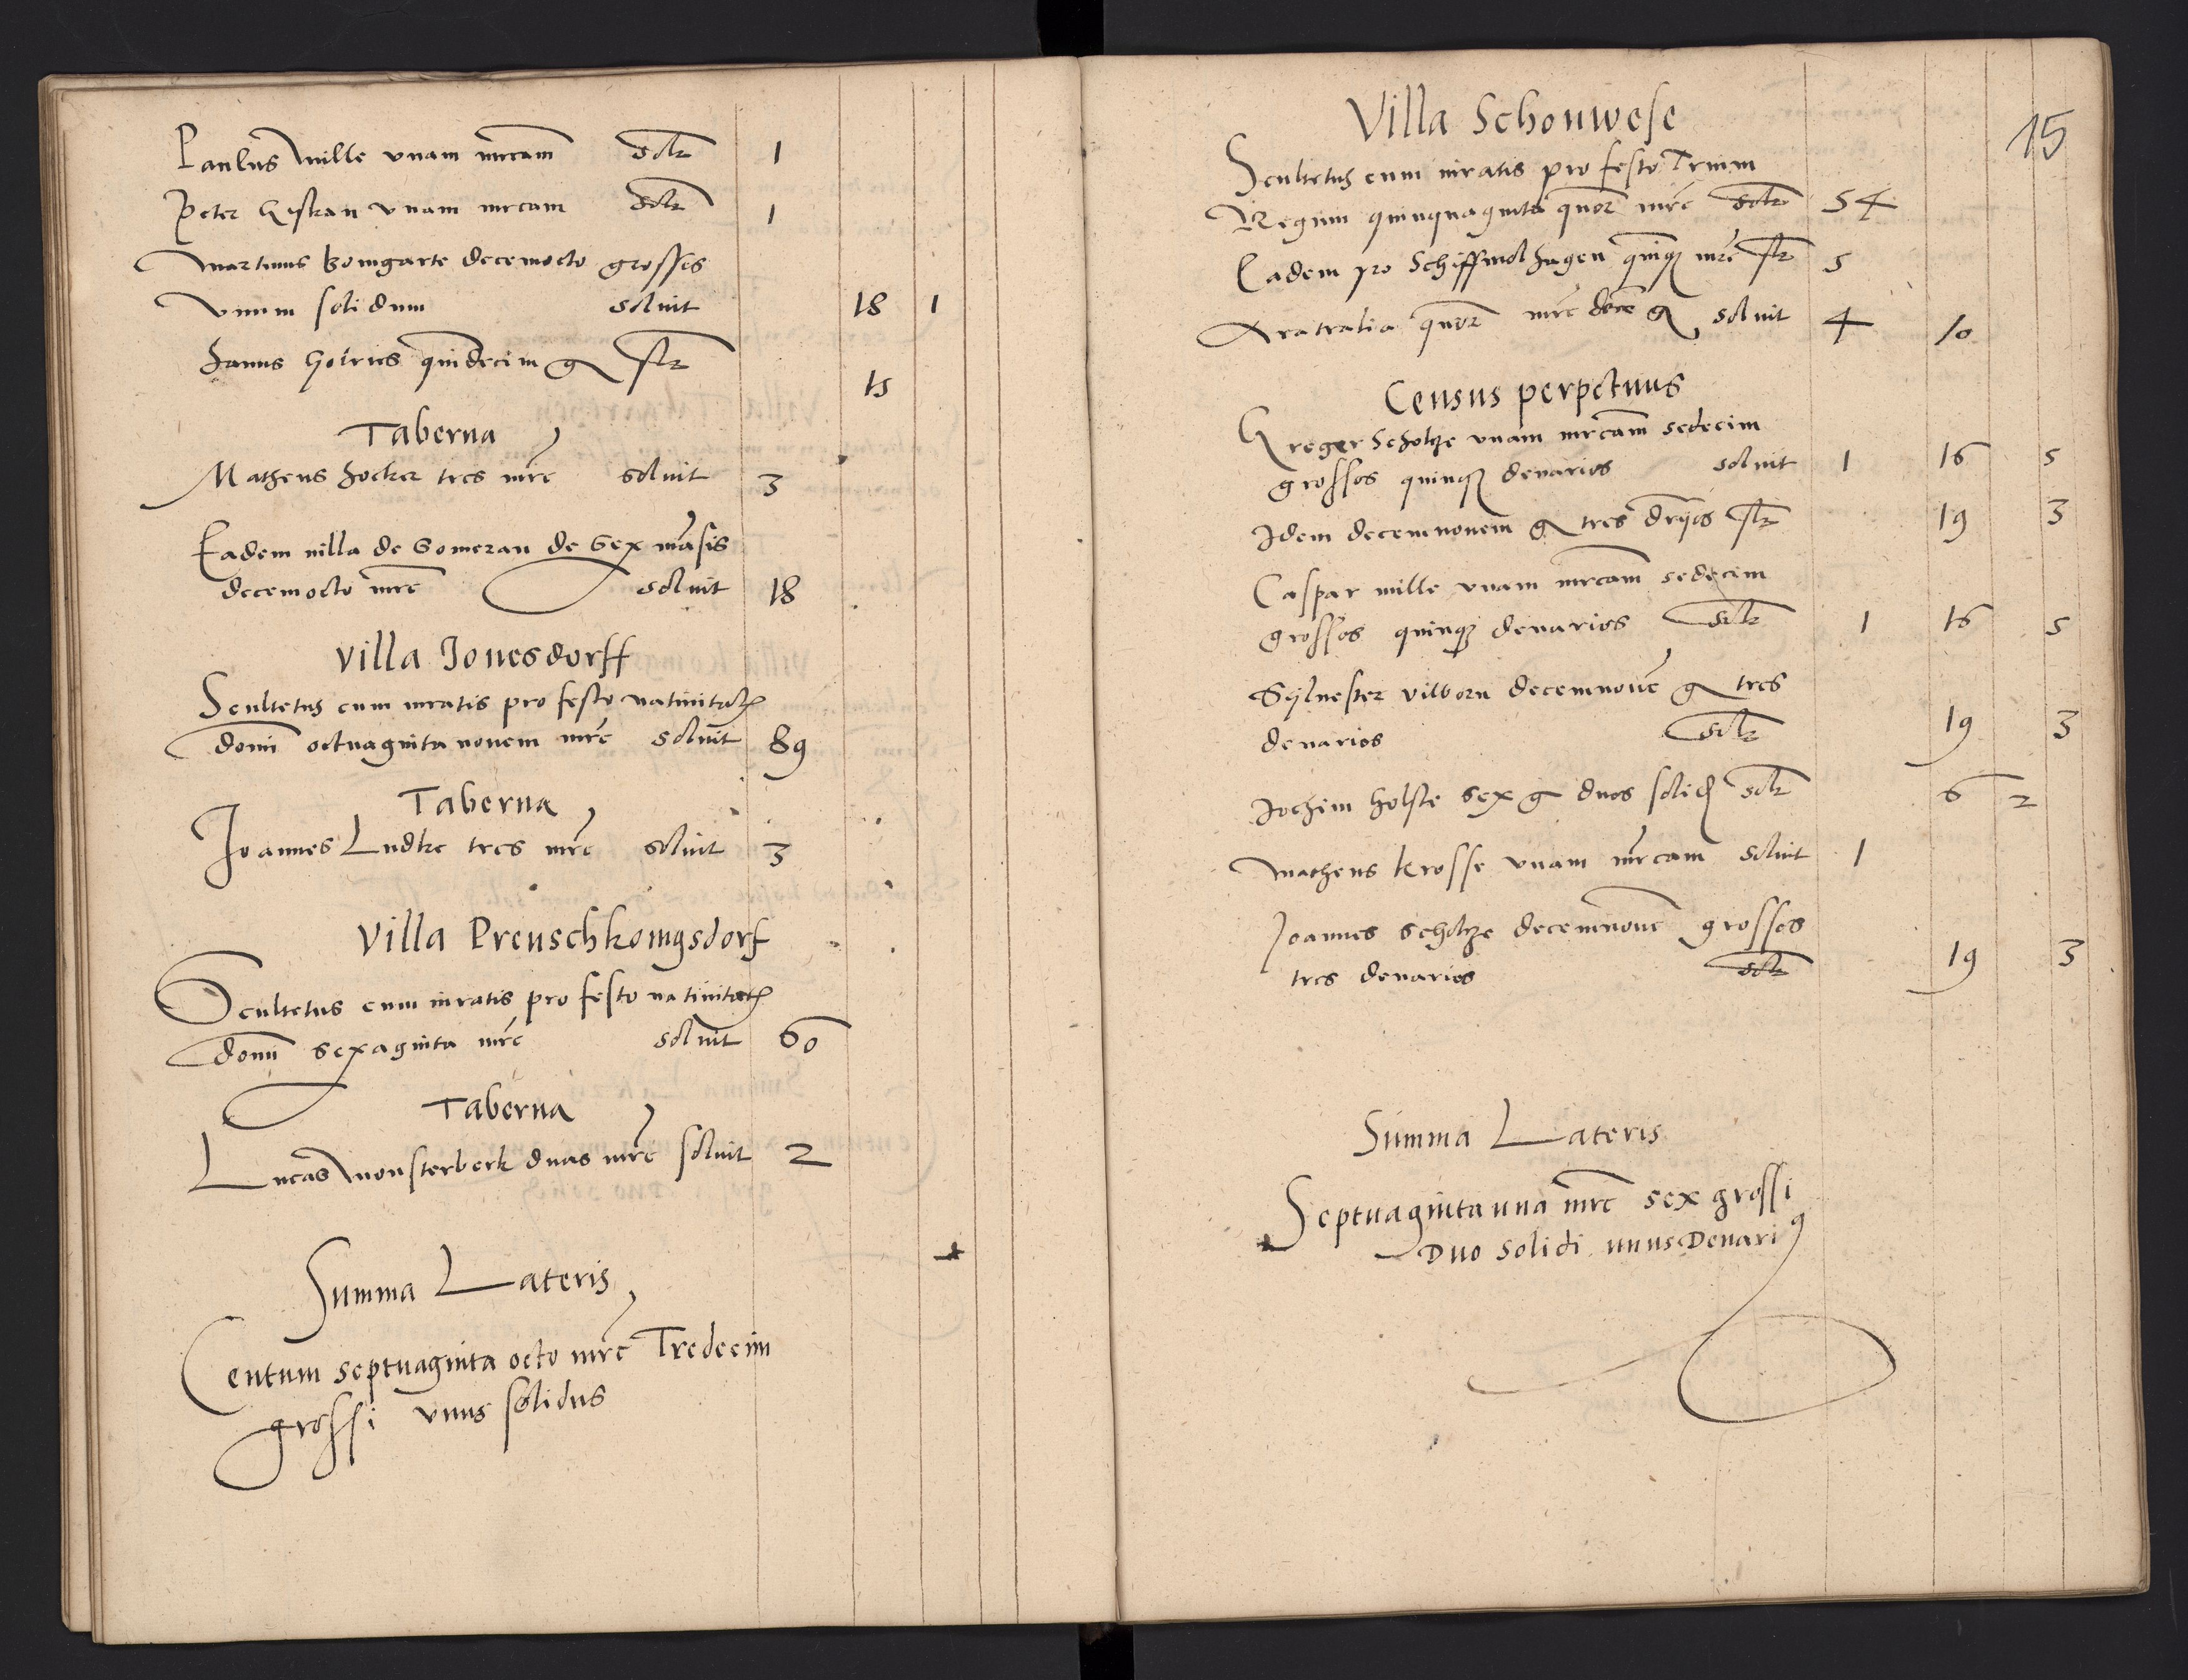 Paulus Mille unam mrcam solt 1
Peter Gistan unam mrcam solt 1
Martinus bomgarte decemocto grosses
Unum solidum soluit 18 1
Hanns Goirus quindecim g slt 15
Taberna
Matheus Hocker tres mrc soluit 3
Eadem villa de Someran de Sex māsis
decemocto mrc soluit 18
Villa Jonesdorff
Scultetus cum iuratis pro festo natiuitatꝫ
domi octuaginta nouem mrc soluit 89
Taberna
Joannes Ludke tres mrc soluit 3
Villa Preuschkonigsdorf
Scultetus cum iuratis pro festo natiuitatꝫ
domi sexaginta mrc soluit 60
Taberna
Lucas Monsterberk duas mrc soluit 2
Summa Lateris
Centum septuaginta octo mrc Tredecim
grossi unus solidus
15
Villa Schonwese
Scultetus cum iuratis pro festo Trium
Regum quinquaginta quor mrc solt 54
Eadem pro Schiffmolhagen quinqꝫ mrc slt 5
Aratralia quor mrc dece g soluit 4 10
Census perpetuus
Greger Scholtze unam mrcam sedecim
grossos quinqꝫ denarios soluit 1 16 5
Idem decemnouem g tres drijos slt 19 3
Caspar mille unam mrcam sedecim
grossos quinqꝫ denarios solt 1 16 5
Syluester vilborn decemnoue g tres
denarios solt 19 3
Jochim holste sex g duos solid solt 6 2
Matheus krosse unam mrcam soluit 1
Joannes Scholtze decemnoue grosses
tres denarios solt 19 3
Summa Lateris
Septuaginta una mrc sex grossi
Duo solidi unus Denariꝰ